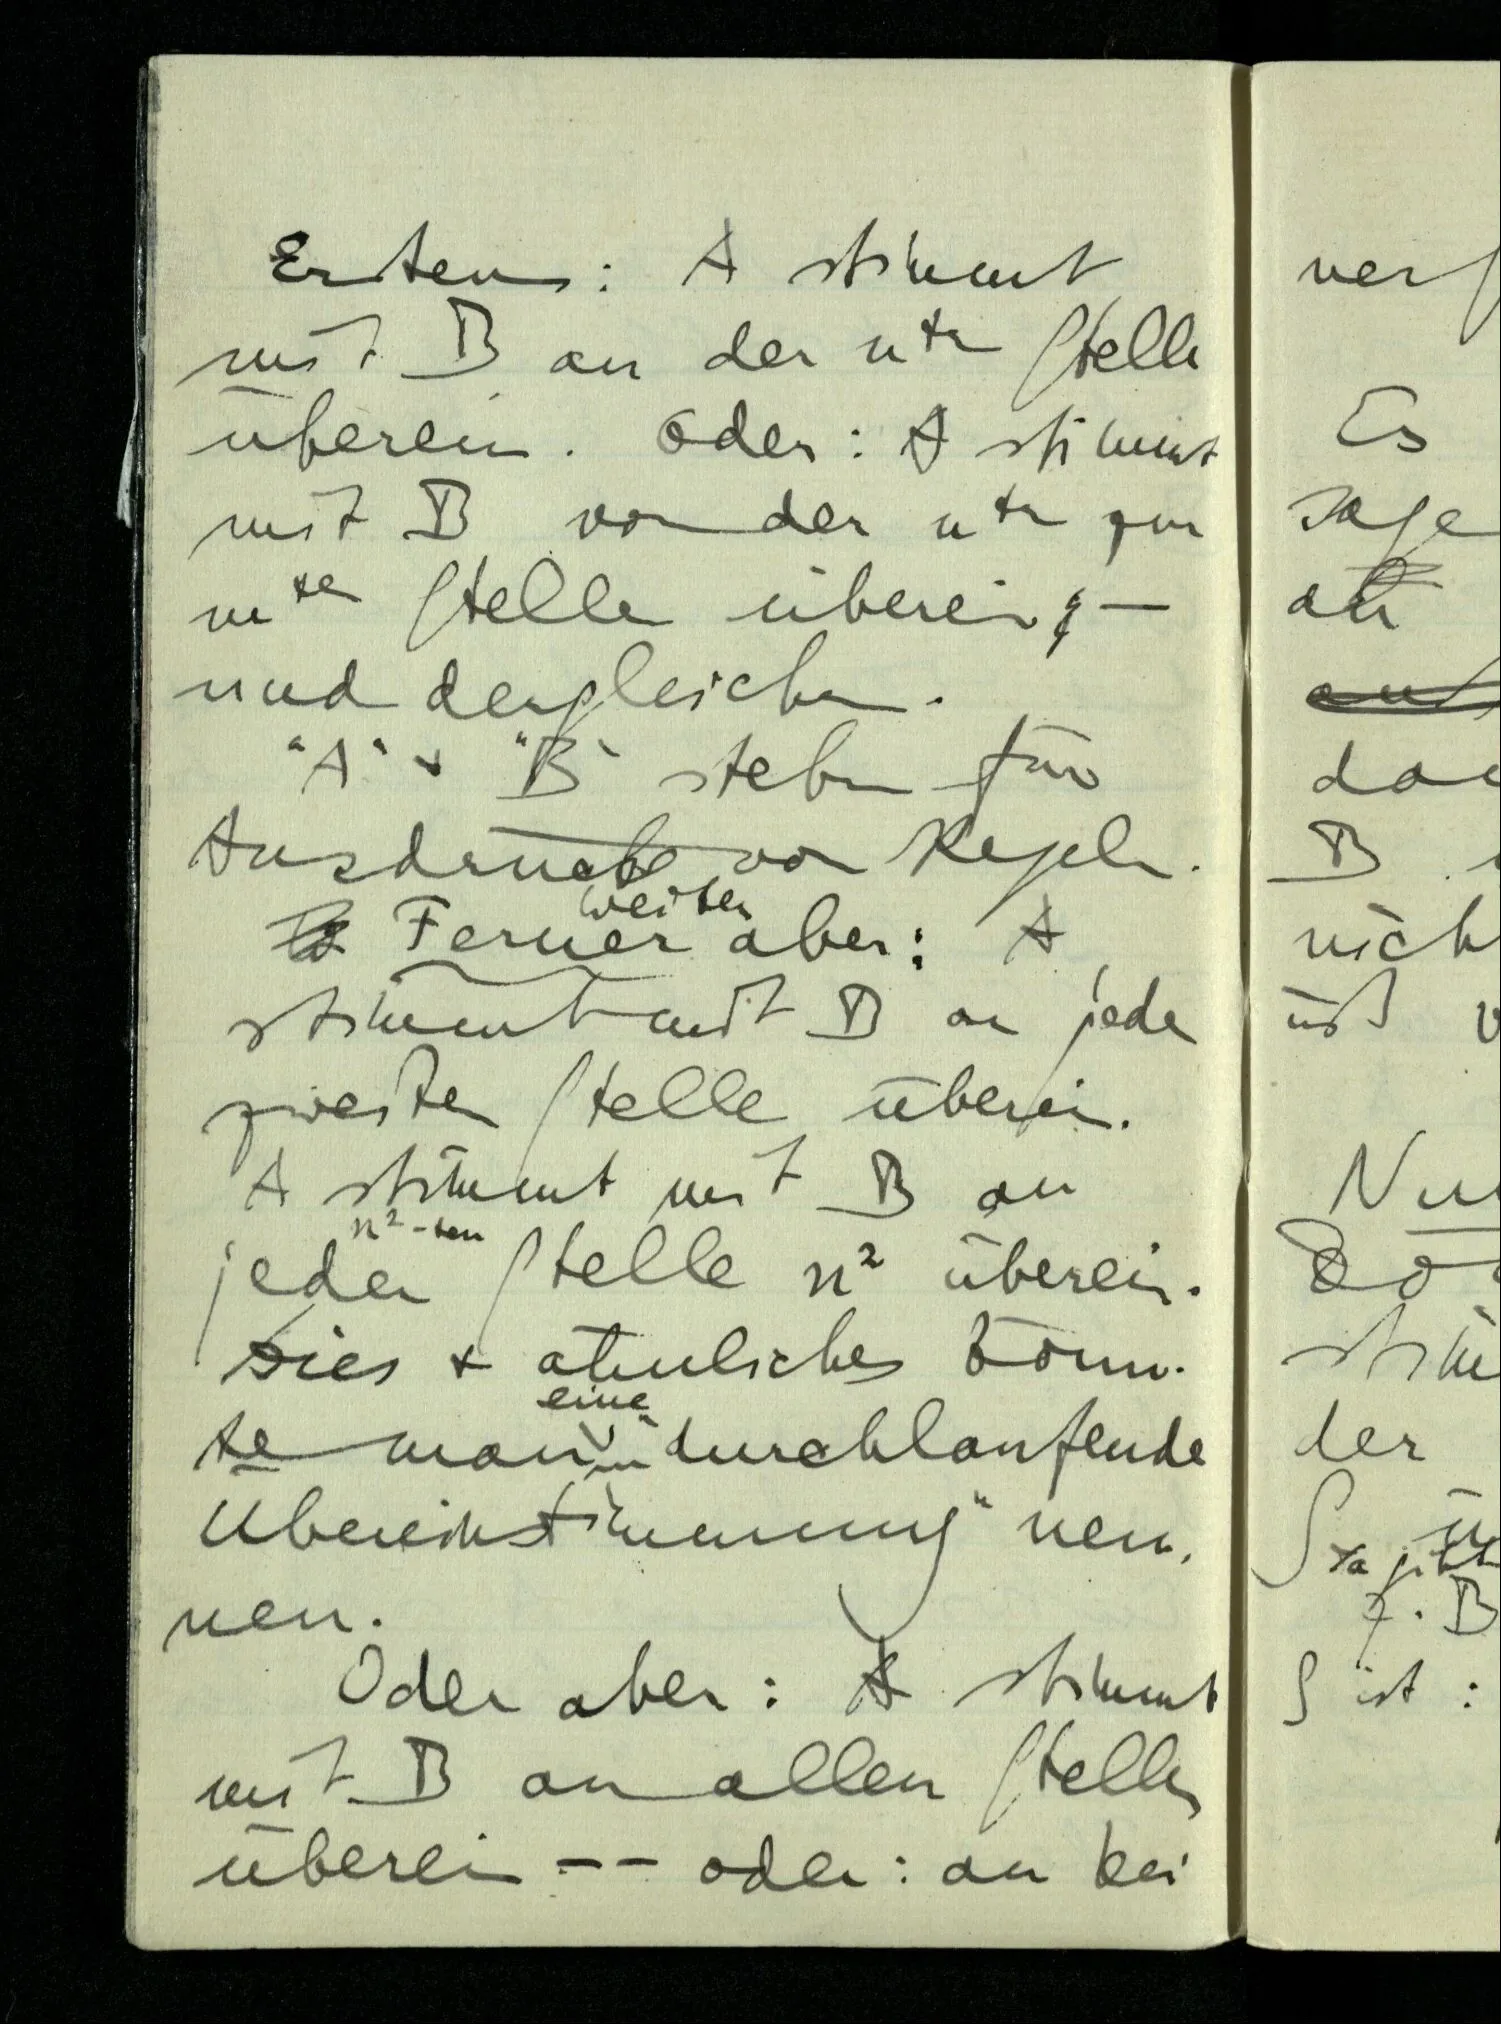 Erstens: A stimmt
mit B an der nte Stelle
überein. Oder: A stimmt
mit B von der nten zur
mten Stelle überein; —
und dergleichen.
"A" + "B" stehen für
Ausdrücke von Regeln.
weiter
Ferner aber: A
stimmt mit B an jeder
zweiten Stelle überein.
A stimmt mit B an
n²-ten
jeder Stelle n² überein.
Dies + ähnliches könn-
eine
te man „durchlaufende
Übereinstimmung" nen-
nen.
Oder aber: A stimmt
mit B an allen Stellen
überein -- oder: an kei
Es
sage
an
B
Nu
der
z.B
ist :